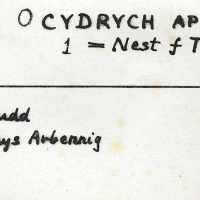 O CYDRYCH AP
1 = Nest f T
udd
ys Arbennig